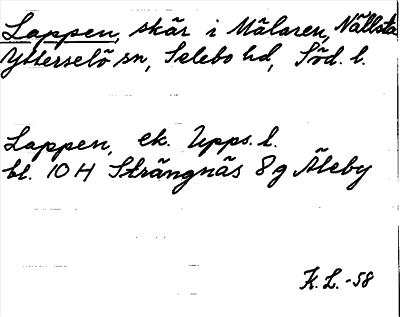 Lappen, skär i Mälaren, Nällsta
Ytterselö sn, Selebo hd, Söd. l.
Lappen, ek. Upps. l.
bl. 10 H Strängnäs 8 g Åleby
K. L. -58